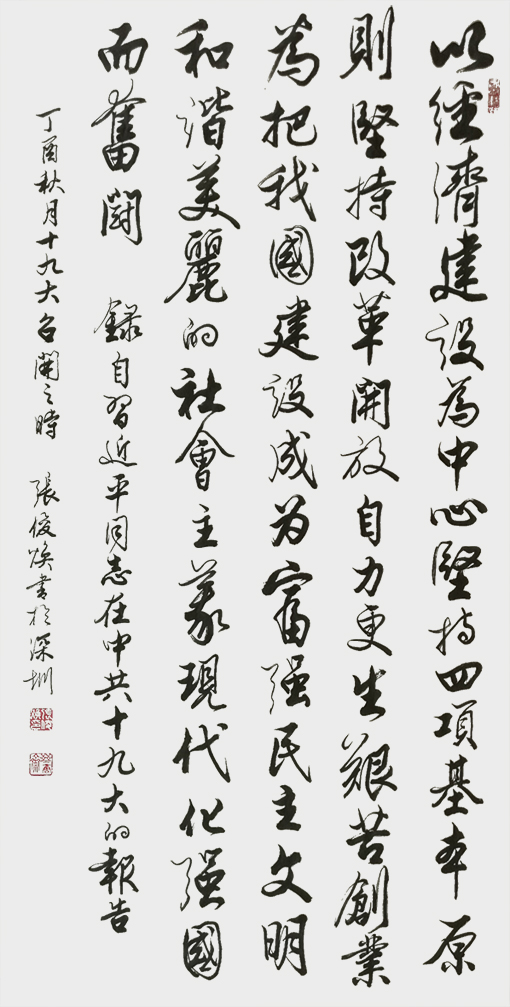 以經濟建設為中心堅持四項基本原
則堅持改革開放自力更生艱苦創業
為把我國建設成为富强民主文明
和谐美麗的社會主義現代化强國
而奮鬪 錄自習近平同志在中共十九大的報告
丁酉秋月十九大召開之時 張俊煥書於深圳